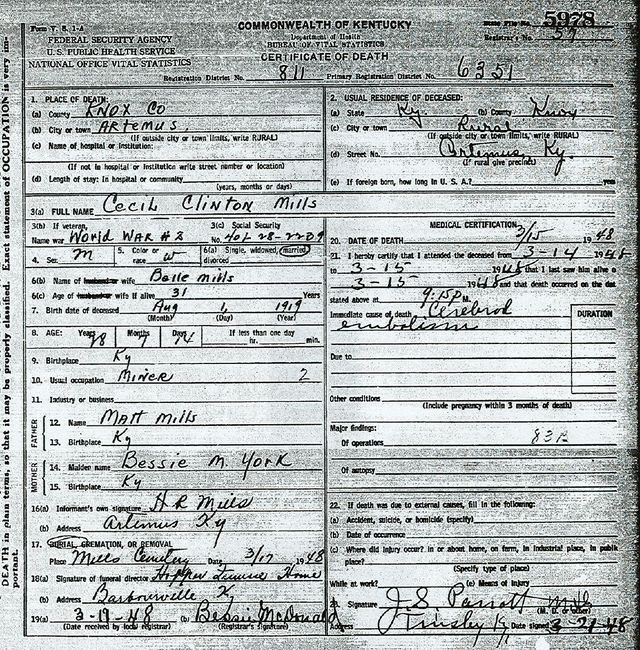 Form V. S. 1-A
COMMONWEALTH OF KENTUCKY
State File No. 5978
FEDERAL SECURITY AGENCY
Department of Health
Registrar's No. 59
U. S. PUBLIC HEALTH SERVICE
BUREAU OF VITAL STATISTICS
NATIONAL OFFICE VITAL STATISTICS
CERTIFICATE OF DEATH
Registration District No. 811 Primary Registration District No. 6351
1. PLACE OF DEATH:
(a) County KNOX CO
(b) City or town ARTEMUS
(If outside city or town limits, write RURAL)
(c) Name of hospital or institution:
(If not in hospital or institution write street number or location)
(d) Length of stay: In hospital or community
(years, months or days)
2. USUAL RESIDENCE OF DECEASED:
(a) State Ky (b) County Knox
(c) City or town Rural
(If outside city or town limits, write RURAL)
(d) Street No. Artemus Ky.
(If rural give precinct)
(e) If foreign born, how long in U. S. A.? year
3(a) FULL NAME Cecil Clinton Mills
3(b) If veteran, Name war World War #2
3(c) Social Security No.
4. Sex M 5. Color or race W 6(a) Single, widowed, married, divorced
6(b) Name of husband or wife Balle Mills
6(c) Age of husband or wife if alive 31 Years
7. Birth date of deceased Aug 1, 1919
(Month) (Day) (Year)
8. AGE: Years 28 Months 7 Days 14 If less than one day hr. min.
9. Birthplace Ky
10. Usual occupation MINER 2
11. Industry or business
FATHER
12. Name Matt Mills
13. Birthplace Ky
MOTHER
14. Maiden name Bessie M. York
15. Birthplace Ky
16(a) Informant's own signature H R Mills
(b) Address Artemus Ky
17. BURIAL, CREMATION, OR REMOVAL
Place Mills Cemetery Date 3/17 1948
18(a) Signature of funeral director Hopper Funeral Home
(b) Address Barbourville Ky
19(a) 3-19-48 (b) Bessie McDonald
(Date received by local registrar) (Registrar's signature)
MEDICAL CERTIFICATION
20. DATE OF DEATH 3/15 1948
21. I hereby certify that I attended the deceased from 3-14 1948
to 3-15 1948 that I last saw him alive o
3-15 1948 and that death occurred on the dat
stated above at 9:15P M.
Immediate cause of death Cerebral
embolism
DURATION
Due to
Other conditions
(Include pregnancy within 3 months of death)
Major findings:
Of operations
Of autopsy
22. If death was due to external causes, fill in the following:
(a) Accident, suicide, or homicide (specify)
(b) Date of occurrence
(c) Where did injury occur? in or about home, on farm, in industrial place, in public
place?
(Specify type of place)
While at work? (e) Means of injury
23. Signature J. S. Parrott M.D.
Address Kinsley Ky Date signed 3-21-48
DEATH in plain terms, so that it may be properly classified. Exact statement of OCCUPATION is very im-
portant.